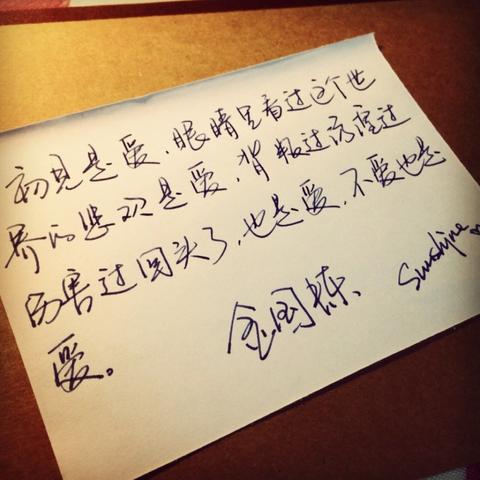 初见是爱，眼睛里看过这个世
界的悲观是爱，背叛过
厉害过回头了，也是爱，不爱也是
爱。
金国栋 Sunshine